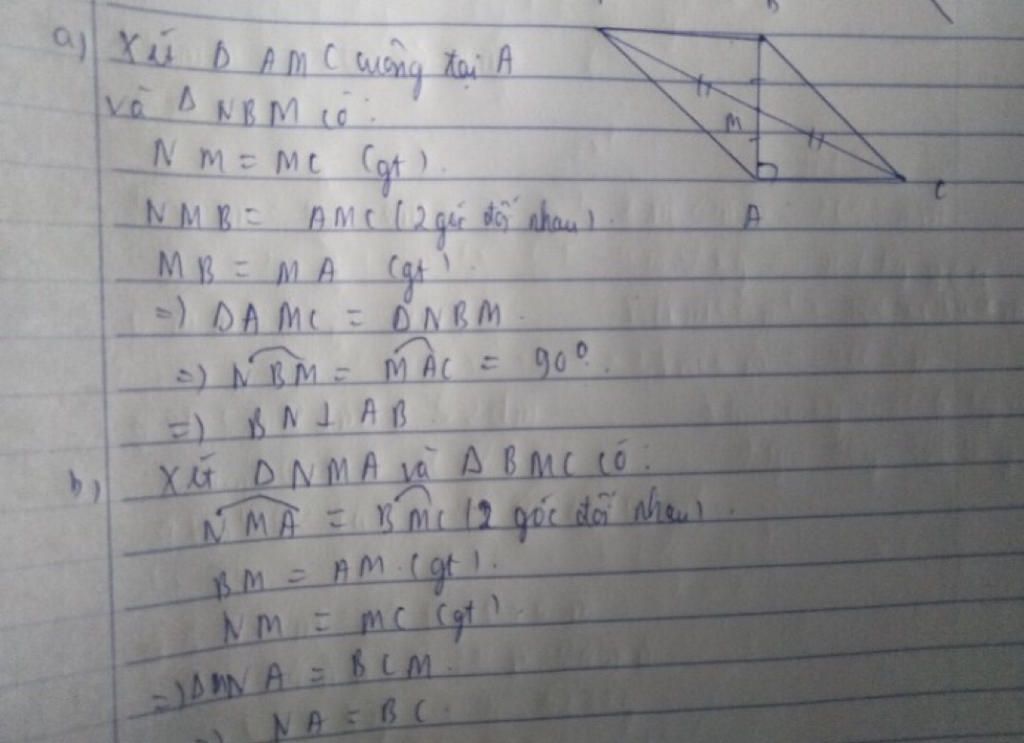 a) Xét Δ AMC vuông tại A
B
và Δ NBM có:
M
NM = MC (gt).
C
NMB = AMC (2 góc đối nhau).
A
MB = MA (gt).
=) ΔAMC = ΔNBM.
=) NBM = MAC = 90°.
=) BN ⊥ AB
b) Xét ΔNMA và ΔBMC có:
NMA = BMC (2 góc đối nhau).
BM = AM.(gt).
NM = MC (gt).
=) ΔMNA = BCM.
=) NA = BC.